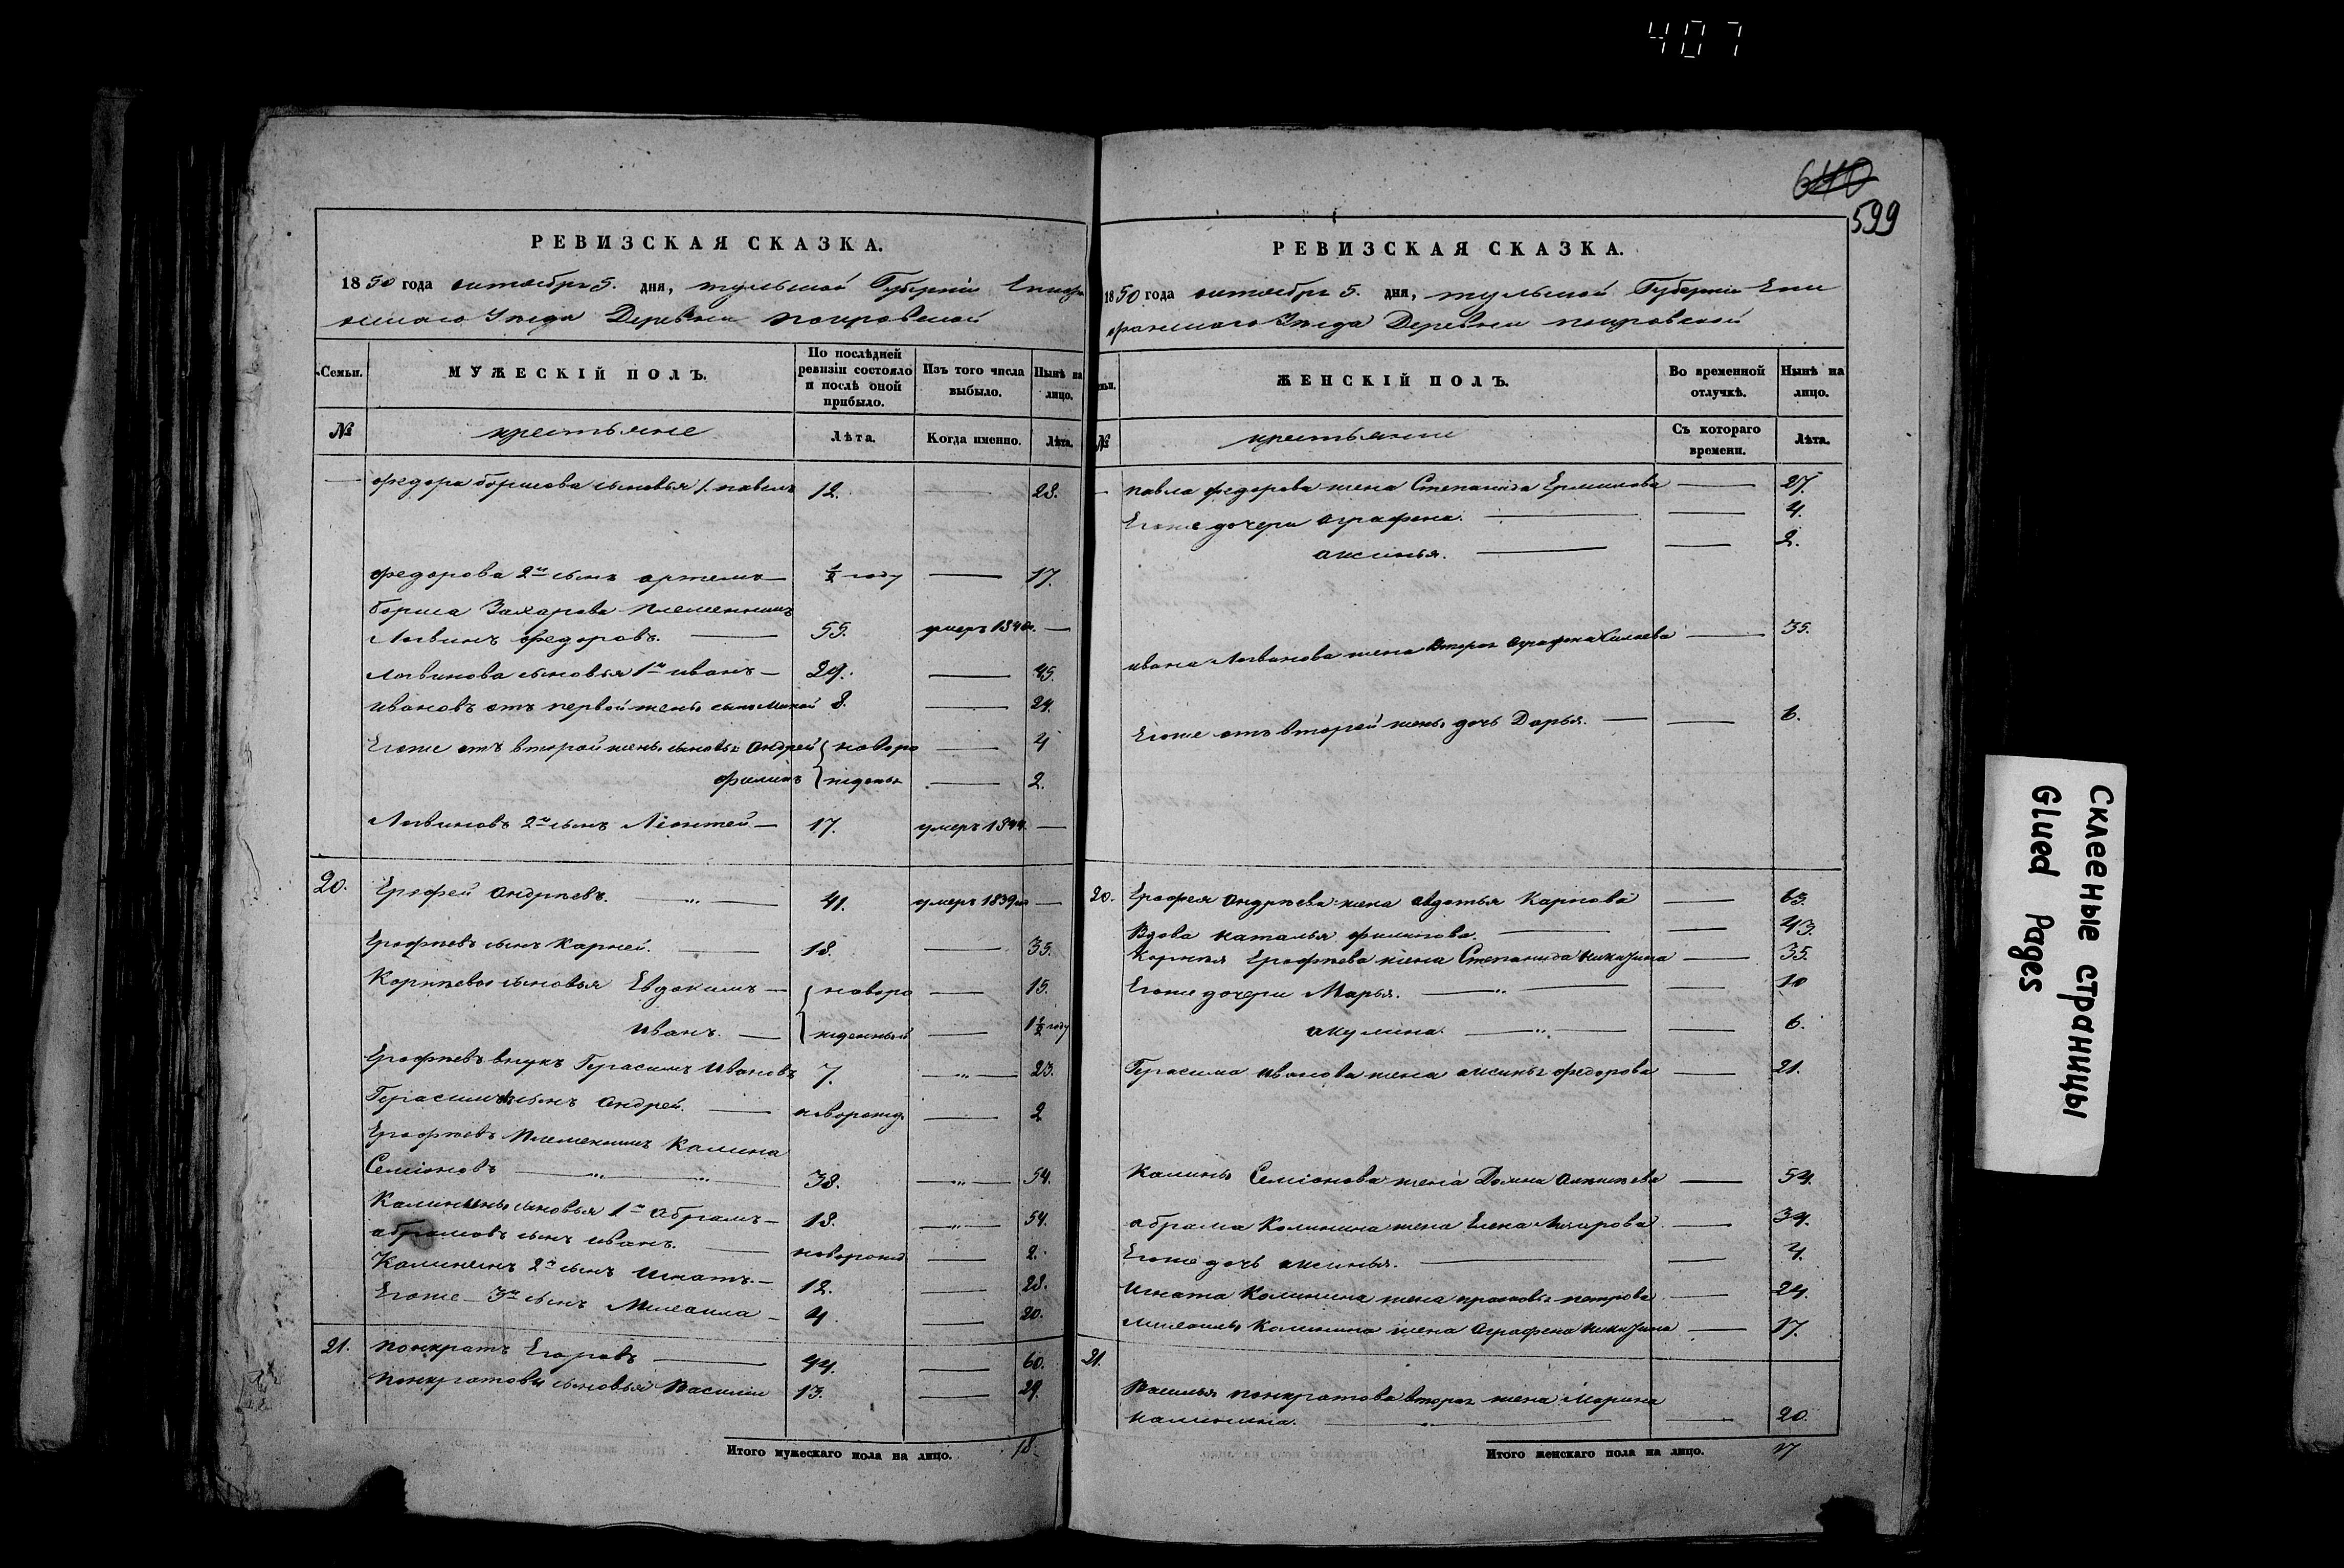 407
640
599
РЕВИЗСКАЯ СКАЗКА.
1850 года октября 5. дня, тульской Губернiи Епифа
нскаго Уезда Деревни покровской
Семьи. МУЖЕСКIЙ ПОЛЪ. По послѣдней ревизiи состояло и послѣ оной прибыло. Изъ того числа выбыло. Нынѣ на лицо.
№ крестьяне Лѣта. Когда именно. Лѣта.
федора борисова сыновья 1. павелъ 12. 28.
федорова 2й сынъ артемъ ½ году 17.
бориса Захарова племенникъ
Логвинъ федоровъ. 55. умеръ 1840.
Логвинова сыновья 1й иванъ 29. 45.
ивановъ отъ первой жены сынъ 8. 24.
Егоже отъ второй жены сыновья андрей новоро 4
филипъ жденые 2.
Логвиновъ 2й сынъ Леонтей 17. умеръ 1844.
20. Ерофей андреевъ. 41. умеръ 1839
Ерофѣевъ сынъ Карней. 18. 35.
Корнѣевы сыновья Евдокимъ новоро 15.
иванъ. жденный 1½ году
Ерофѣевъ внукъ Герасимъ ивановъ 7. 23.
Герасимовъ сынъ андрей. уворожд. 2
Ерофѣевъ племенникъ Калина
Семiоновъ 38. 54.
Калинины сыновья 1й абрамъ 18. 54.
абрамовъ сынъ иванъ. новорожд 2.
Калининъ 2й сынъ игнатъ. 12. 28.
Егоже 3й сынъ Михаила 4. 20.
21. понкратъ Егоровъ 44. 60.
понкратовы сыновья василiй 13. 29.
Итого мужескаго пола на лицо. 18.
РЕВИЗСКАЯ СКАЗКА.
1850 года октября 5. дня, тульской Губернiи Епи
фанскаго Уезда Деревни покровской
ьи. ЖЕНСКIЙ ПОЛЪ. Во временной отлучкѣ. Нынѣ на лицо.
№ крестьяне Съ котораго времени. Лѣта.
павла федорова жена Степанида Ермилова 27.
Егоже дочери аграфена. 4.
аксинья. 2.
ивана Логвинова жена вторая аграфена 35.
Егоже отъ второй жены дочь Дарья. 6.
20. Ерофея андреева жена авдотья Карпова 63.
Вдова наталья филипова. 43.
Корнея Ерофѣева жена Степанида никитина 35.
Егоже дочери Марья. 10
акулина. 6.
Герасима иванова жена аксинья федорова 21.
Калины Семiонова жена Домна 54.
абрама Калинина жена Елена 34.
Егоже дочь аксинья. 4.
игната Калинина жена прасковья петрова 24.
Михаилы Калинина жена аграфена никитина 17.
21.
василья понкратова вторая жена Марина
калинина. 20.
Итого женскаго пола на лицо. 17
Склееные страницы
Glued Pages